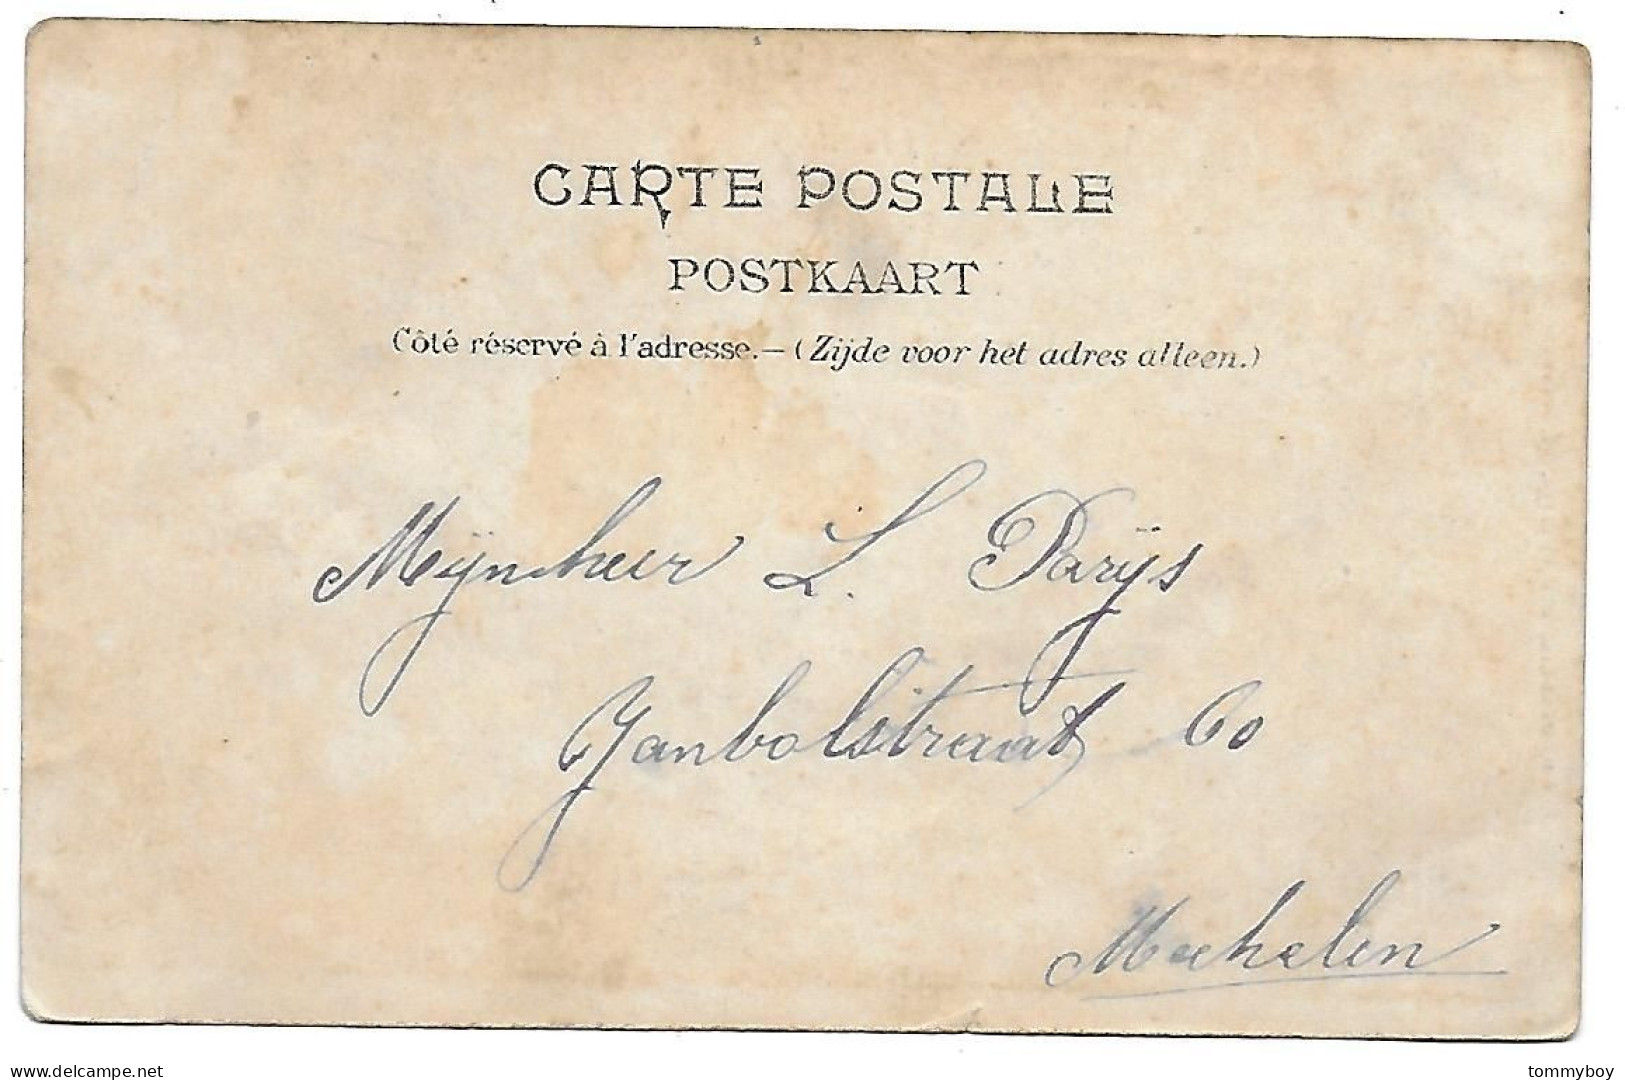 CARTE POSTALE
POSTKAART
Côté réservé à l'adresse.— (Zijde voor het adres alleen.)
Mÿnheer L. Parÿs
Janbolstraat 60
Mechelen
delcampe.net
tommyboy